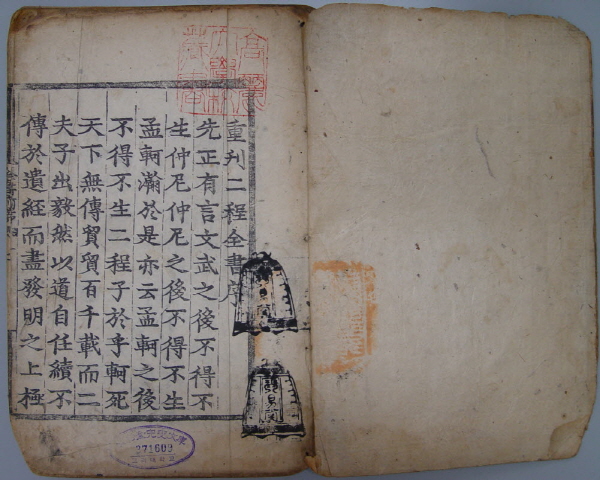 重刊二程全書序
先正有言文武之後不得不
生仲尼仲尼之後不得不生
孟軻瀚於是亦云孟軻之後
不得不生二程子於乎軻死
天下無傳貿貿百千載而二
夫子出毅然以道自任續不
傳於遺經而盡發明之上極
271609